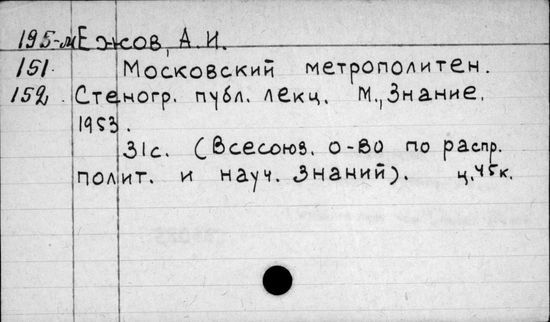 195-м Ежов, А.И.
151. Московский метрополитен.
152. Стеногр. публ. лекц. М., Знание.
1953.
31с. (Всесоюз. о-во по распр.
полит. и науч. знаний). ц.45к.